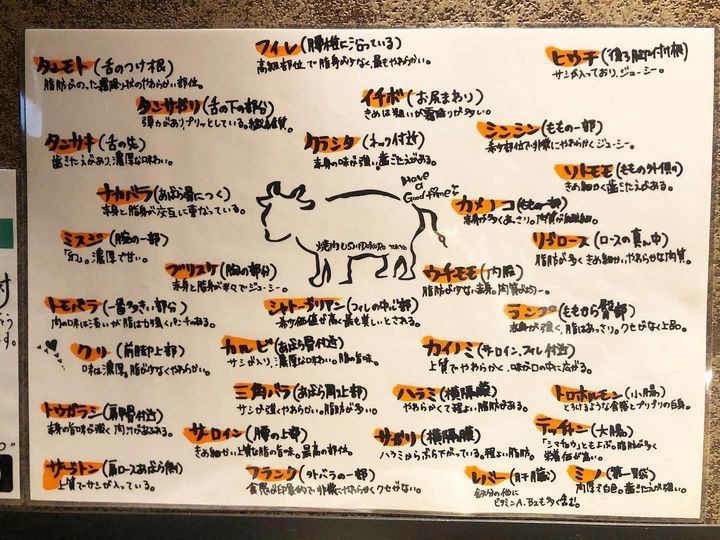 タンモト(舌のつけ根)
脂肪がのった霜降り状のやわらかい部位。
フィレ(腰椎に沿っている)
高級部位で脂身が少なく、最もやわらかい。
ヒウチ(後ろ脚付け根)
サシが入っており、ジューシー。
タンサガリ(舌の下の部分)
弾力があり、プリッとしている。繊維質。
イチボ(お尻まわり)
きめは粗いが霜降りが多い。
タンサキ(舌の先)
歯ごたえがあり、濃厚な味わい。
クラシタ(ネック付近)
赤身の味が強い。歯ごたえがある。
シンシン(ももの一部)
希少部位で非常にやわらかくジューシー。
ソトモモ(ももの外側)
きめ細かく歯ごたえがある。
ナカバラ(あばら骨につく)
赤身と脂身が交互に重なっている。
Have
a
Good time
カメノコ(ももの一部)
赤身が多くあっさり。肉質が
ミスジ(腕の一部)
濃厚で甘い。
焼肉USHIDOKORO
リブロース(ロースの真ん中)
脂肪が多くきめ細かい、やわらかな肉質。
ブリスケ(胸の部分)
赤身と脂身が半々でジューシー。
ウチモモ(内股)
脂肪が少ない赤身。肉質が均一。
トモバラ(一番多きい部分)
肉の味は濃いが脂は力強くパンチのある。
シャトーブリアン(フィレの中心部)
希少価値が高く最も美しいとされる。
ランプ(ももから臀部)
赤身が強く、脂はあっさり。クセがなく上品。
クリ(前脚上部)
味は濃厚。脂が少なくやわらかい。
カルビ(あばら骨付近)
サシが入り、濃厚な味わい。脂の旨味。
カイノミ(サーロイン、フィレ付近)
上質でやわらかく、味が口の中に広がる。
三角バラ(あばら肩上部)
サシが強くやわらかい。脂肪が多い。
ハラミ(横隔膜)
やわらかくて程よい脂肪がある。
トロホルモン(小腸)
とろけるような食感とプリプリの白身。
トウガラシ(肩甲骨付近)
赤身の旨味が強く肉汁があふれる。
サーロイン(腰の上部)
きめ細かい上質な脂の旨味。最高の部位。
サガリ(横隔膜)
ハラミからぶら下がっている。程よい脂肪。
テッチャン(大腸)
「シマチョウ」ともよぶ。脂肪が多く
栄養価が高い。
ザブトン(肩ロースあばら側)
上質でサシが入っている。
フランク(ソトバラの一部)
食感が印象的で非常にやわらかくクセがない。
レバー(肝臓)
鉄分の他に
ビタミンA、B2も多く含む。
ミノ(第一胃袋)
肉厚で白色。歯ごたえが強い。